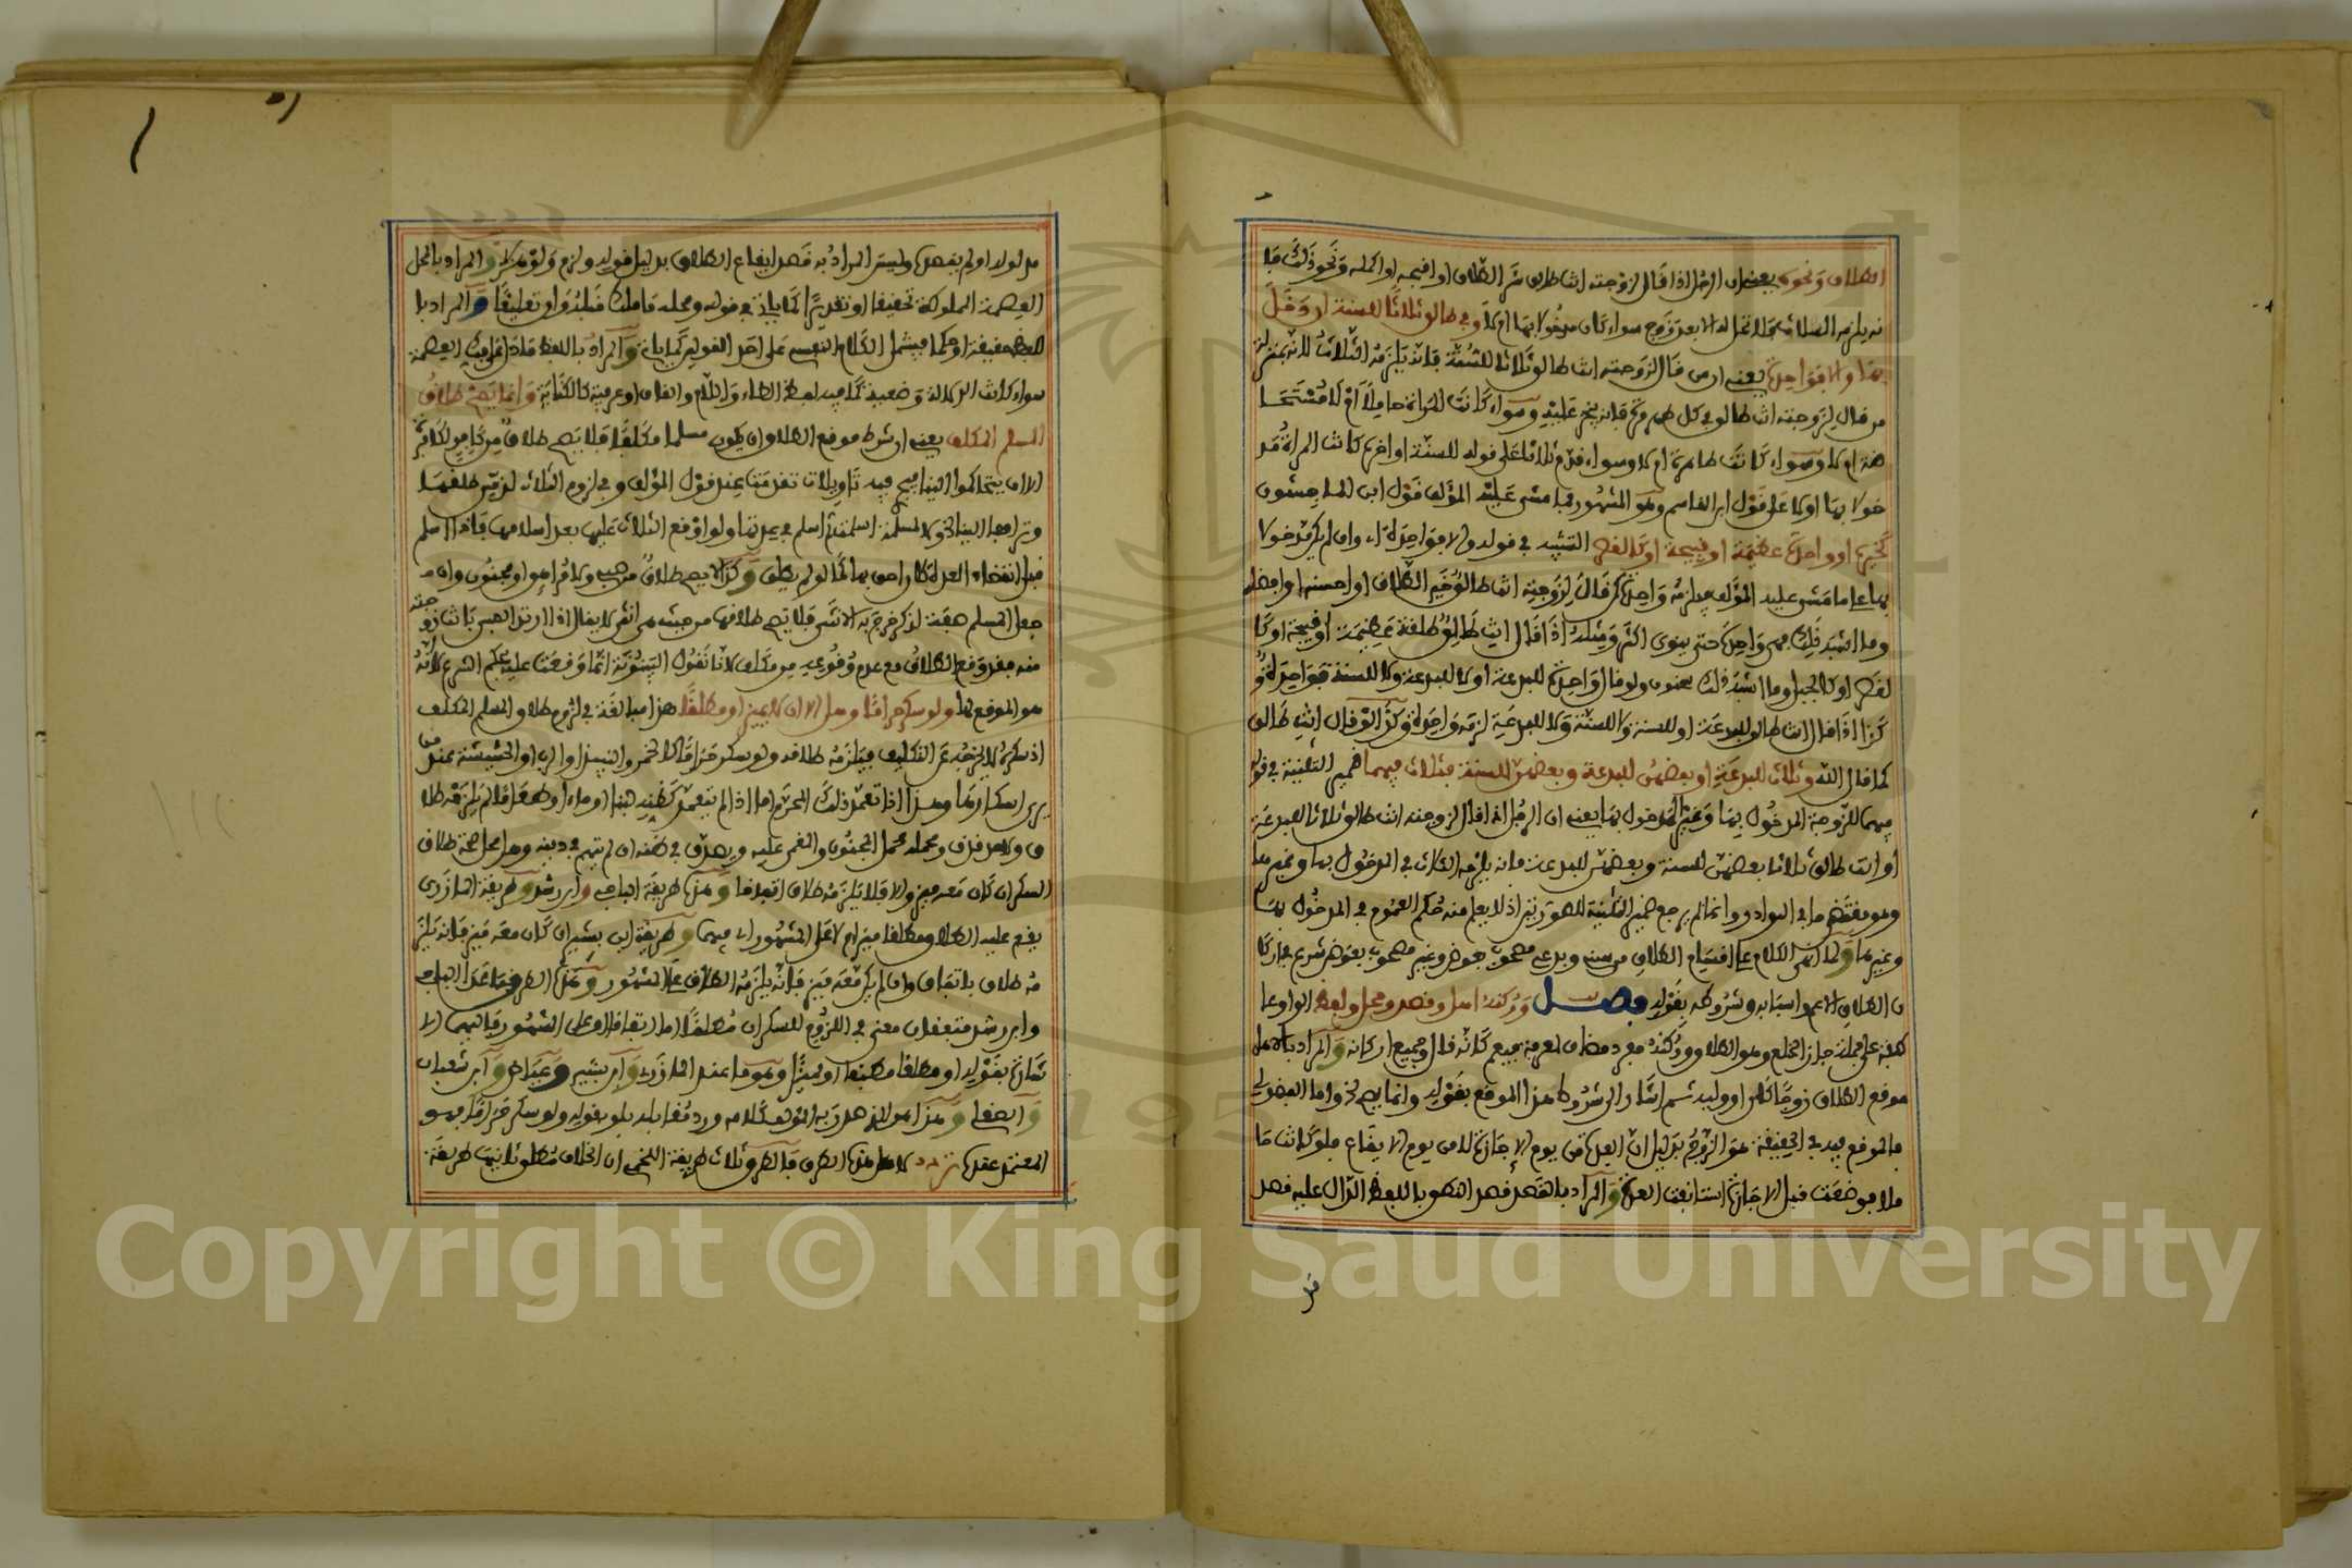 الطلاق ونحوه يعني ان الرجل اذا قال لزوجته انت طالق شر الطلاق او اقبحه او اكمله ونحو ذلك فا
نه يلزمه الثلاث فلا تحل له الا بعد زوج سواء كان مدخولا بها ام لا وفي طالق ثلاثا للسنة ان دخل
بها والا فواحدة يعني ان من قال لزوجته انت طالق ثلاثا للسنة فانه يلزمه الثلاث لانه بمنزلة
من قال لزوجته انت طالق في كل طهر مرة فانه ينجز عليه وسواء كانت المراة حاملا ام لا مستحا
ضة ام لا وسواء كانت طاهرة ام لا وسواء قدم ثلاثا على قوله للسنة او اخره كانت المراة مد
خولا بها او لا على قول ابن القاسم وهو المشهور فما مشى عليه المؤلف قول ابن الماجشون
كخيره او واحدة عظيمة او قبيحة او كالقصر التشبيه في قوله والا فواحدة اي وان لم يكن مدخولا
بها على ما مشى عليه المؤلف فيلزمه واحدة كمن قال لزوجته انت طالق خير الطلاق او احسنه او افضله
وما اشبه ذلك فهي واحدة حتى ينوي اكثر ومثله اذا قال انت طالق طلقة عظيمة او قبيحة او كا
لقصر او كالجبل وما اشبه ذلك ولو قال واحدة للبدعة او لا للبدعة ولا للسنة فواحدة و
كذا اذا قال انت طالق للبدعة او للسنة ولا للسنة ولا للبدعية لزمه واحدة وكذا لو قال انت طالق
كما قال الله وثلاث للبدعة او بعضهن للبدعة وبعضهن للسنة فثلاث فيهما ضمير التثنية في قوله
فيهما للزوجة المدخول بها وغير المدخول بها يعني ان الرجل اذا قال لزوجته انت طالق ثلاثا للبدعة
او انت طالق ثلاثا بعضهن للسنة وبعضهن للبدعة فانه يلزمه الثلاث في المدخول بها وغيرها
وهو مقتضى ما في النوادر وانما لم يرجع ضمير التثنية للصورتين اذ لا يعلم منه حكم العموم في المدخول بها
وغيرها ولما انهى الكلام على اقسام الطلاق من سني وبدعي مصحوب بعوض وغير مصحوب بعوض شرع في اركا
ن الطلاق الاعم واسبابه وشروطه بقوله فصل وركنه اهل وقصد ومحل ولفظ الواو عا
طفة على جملة جاز الخلع وهو الطلاق وركنه مفرد مضاف لمعرفة فيعم كانه قال وجميع اركانه والمراد بالاهل
موقع الطلاق زوجا كان او وليه ثم اشار الى شروط هذا الموقع بقوله وانما يصح الخ واما الفضولي
فالموقع فيه في الحقيقة هو الزوج بدليل ان العدة من يوم الاجازة لا من يوم الايقاع فلو كانت حا
ملا فوضعت قبل الاجازة استانفت العدة والمراد بالقصد قصد النطق باللفظ الدال عليه قصد
مدلوله او لم يقصده وليس المراد به قصد ايقاع الطلاق بدليل قوله ولزم ولو هزلا والمراد بالمحل
العصمة المملوكة تحقيقا او تقديرا كما ياتي في قوله ومحله ما ملك قبله وان تعليقا والمراد با
للفظ حقيقة او حكما فيشمل الكلام النفسي على احد القولين كما ياتي والمراد باللفظ ما دل على فك العصمة
سواء كانت الدلالة وضعية كما فيه لفظ الطاء واللام والقاف او عرفية كالكناية وانما يصح طلاق
المسلم المكلف يعني ان شرط موقع الطلاق ان يكون مسلما مكلفا فلا يصح طلاق من كافر لكافرة
الا ان يتحاكموا الينا فيجري فيه تاويلات تقدمت عند قول المؤلف وفي لزوم الثلاث لذمي طلقها
وترافعا الينا الخ ولا لمسلمة اسلمت ثم اسلم في عدتها ولو اوقع الثلاث عليها بعد اسلامها فاذا اسلم
قبل انقضاء العدة كان احق بها كما لو لم يطلق وكذا لا يصح طلاق من صبي ولا مراهق ومجنون وان من
جعل المسلم صفة لذكر خرج به الانثى فلا يصح طلاقها من حيث هي انثى لا يقال اذا ارتد الصبي بانت زوجته
منه فقد وقع الطلاق مع عدم وقوعه من مكلف لانا نقول البينونة انما وقعت عليه بحكم الشرع لا انه
هو الموقع لها ولو سكر حراما وهل الا ان لا يميز او مطلقا هذا مبالغة في لزوم طلاق المسلم المكلف
اذ سكره لا يخرجه عن التكليف فيلزمه طلاقه ولو سكر حراما كالخمر والنبيذ او الرب او الحشيشة ممن
يرى اسكارها وهذا اذا تعمد ذلك المحرم اما اذا لم يتعمد كظنه لبنا او ماء او طعاما لم يلزمه طلا
ق ولا حد قذف ومحمله محمل المجنون والمغمى عليه ويصدق في ظنه ان لم يتهم في دينه وهل محل صحة طلاق
السكران ان كان معه ميز والا فلا يلزمه طلاق اتفاقا وهذه طريقة الباجي وابن رشد وطريقة المازري
يقع عليه الطلاق مطلقا ميز ام لا على المشهور فيهما وطريقة ابن بشير ان كان معه ميز فانه يلز
مه طلاق باتفاق وان لم يكن معه ميز فانه يلزمه الطلاق على المشهور وهذه الطرق ما عدا الباجي
وابن رشد متفقان معنى في اللزوم للسكران مطلقا اما اتفاقا او على المشهور فاليهما الا
شارة بقوله او مطلقا مطبقا او مميزا وهو ما عند المازري وابن بشير وعياض وابن شعبان
وابن القصار وهذا هو الذي صدر به المؤلف كلامه ورد مقابله بلو بقوله ولو سكر حراما فهو
المعتمد عنده تردد كامل هذه الطرق فالطرق ثلاث طريقة اللخمي ان الخلاف مطلق ثانيها طريقة
Copyright © King Saud University